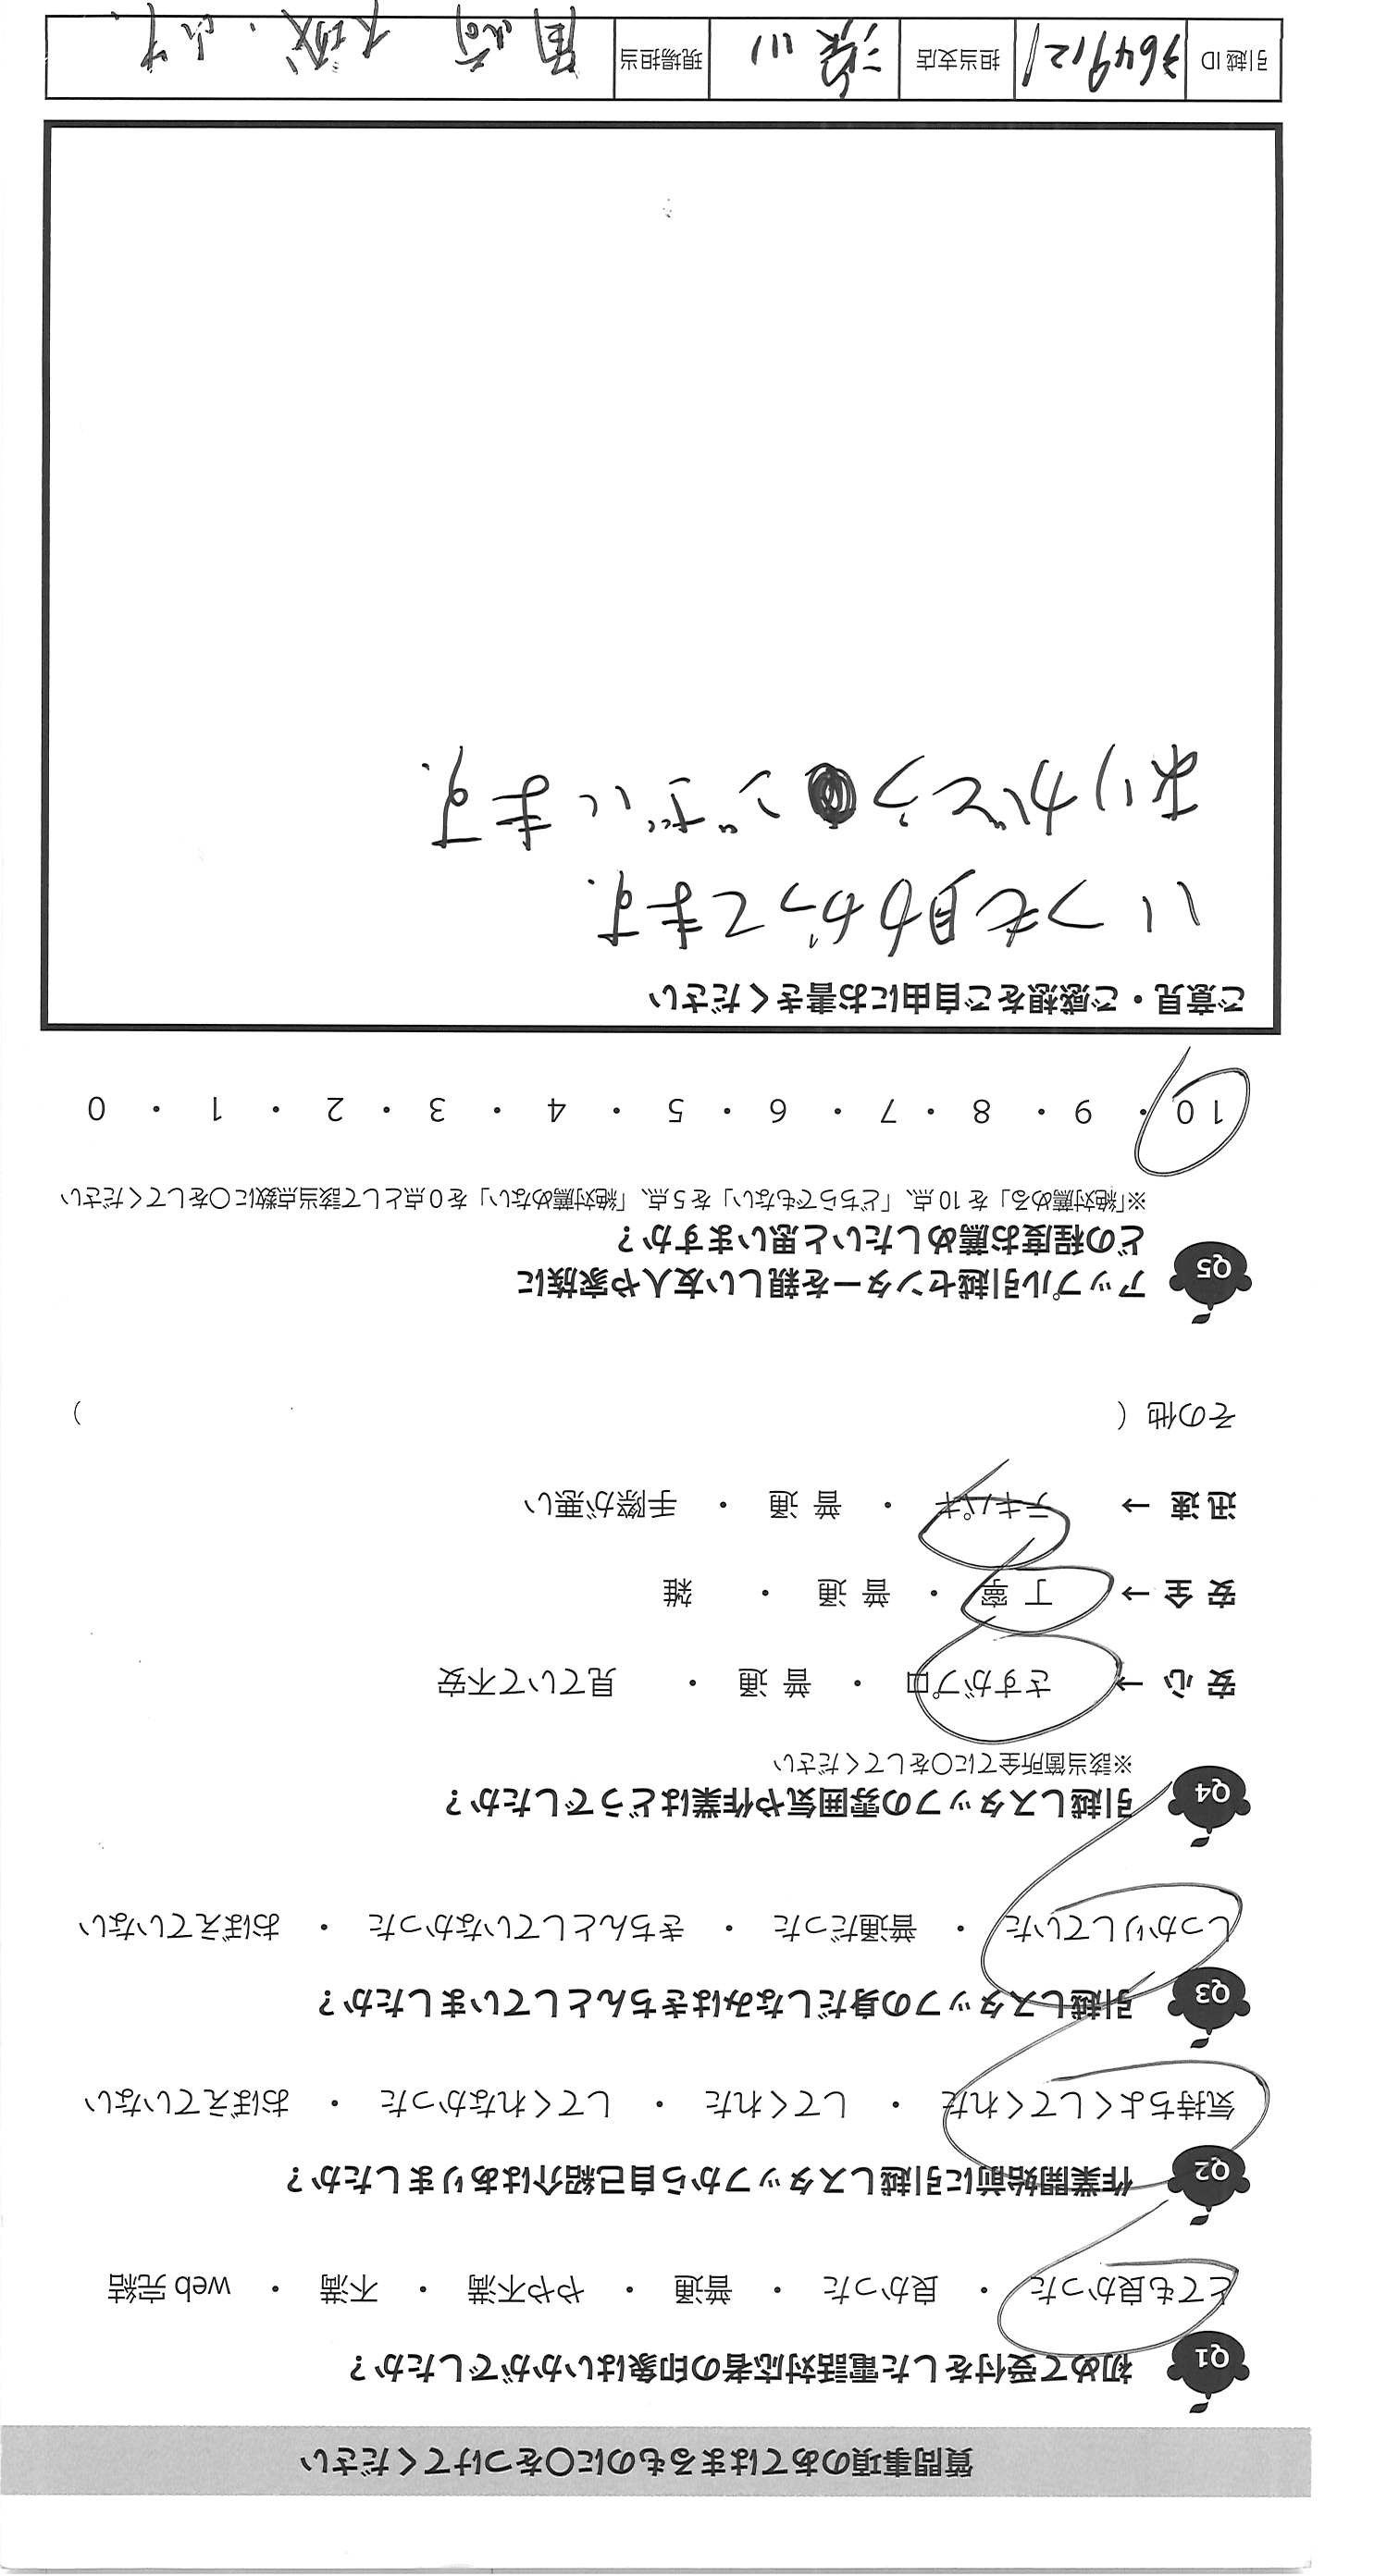 質問事項のあてはまるものに〇をつけてください
Q1 初めて受付をした電話対応者の印象はいかがでしたか？
とても良かった ・ 良かった ・ 普通 ・ やや不満 ・ 不満 ・ web 完結
Q2 作業開始前に引越しスタッフから自己紹介はありましたか？
気持ちよくしてくれた ・ してくれた ・ してくれなかった ・ おぼえていない
Q3 引越しスタッフの身だしなみはきちんとしていましたか？
しっかりしていた ・ 普通だった ・ きちんとしていなかった ・ おぼえていない
Q4 引越しスタッフの雰囲気や作業はどうでしたか？
※該当箇所全てに〇をしてください
安 心 → さすがプロ ・ 普 通 ・ 見ていて不安
安 全 → 丁 寧 ・ 普 通 ・ 雑
迅 速 → テキパキ ・ 普 通 ・ 手際が悪い
その他（ ）
Q5 アップル引越センターを親しい友人や家族に
どの程度お薦めしたいと思いますか？
※「絶対薦める」を 10 点、「どちらでもない」を 5 点、「絶対薦めない」を 0 点として該当点数に〇をしてください
10 ・ 9 ・ 8 ・ 7 ・ 6 ・ 5 ・ 4 ・ 3 ・ 2 ・ 1 ・ 0
ご意見・ご感想をご自由にお書きください
いつも助かってます.
ありがとう ございます.
引越 ID 3649121 担当支店 深川 現場担当